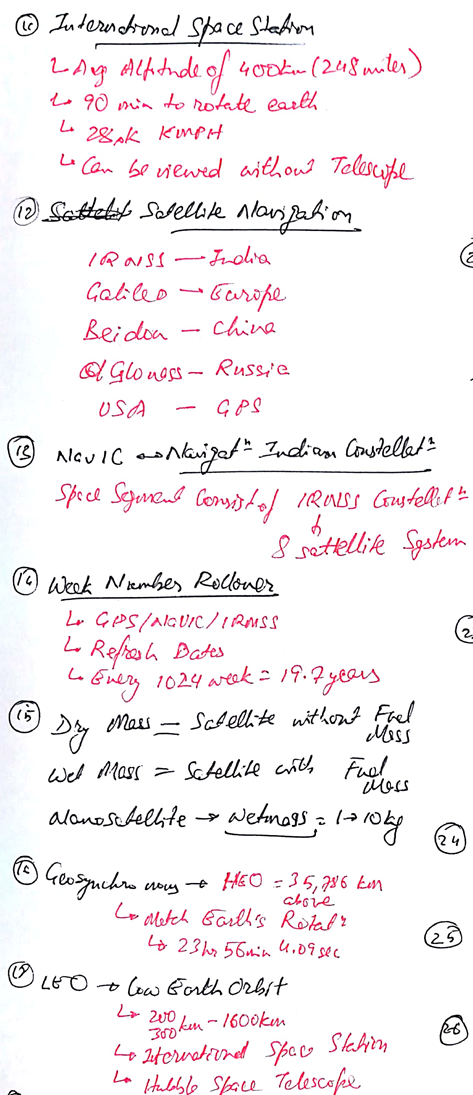 International Space Station
↳ Avg Altitude of 400km (248 miles)
↳ 90 min to rotate earth
↳ 28,k KMPH
↳ Can be viewed without Telescope
(12) Satellite Navigation
IRNSS — India
Galileo — Europe
Beidou — China
Glonass — Russia
USA — GPS
(13) NavIC ↔ Navigatⁿ Indian Constellatⁿ
Space Segment Consist of IRNSS Constellatⁿ
8 sattellite System
(14) Week Number Rollover
↳ GPS/NAVIC/IRNSS
↳ Refresh Dates
↳ Every 1024 week = 19.7 years
(15) Dry Mass = Satellite without Fuel
Mass
Wet Mass = Satellite with Fuel
Mass
Nanosatellite → Wetmass = 1→10kg
(24)
Geosynchronous → HEO = 35,786 km
above
↳ Match Earth's Rotatⁿ
↳ 23hr 56min 4.09sec
(25)
LEO → Low Earth Orbit
↳ 200
300 km - 1600km
(26)
↳ International Space Station
↳ Hubble Space Telescope